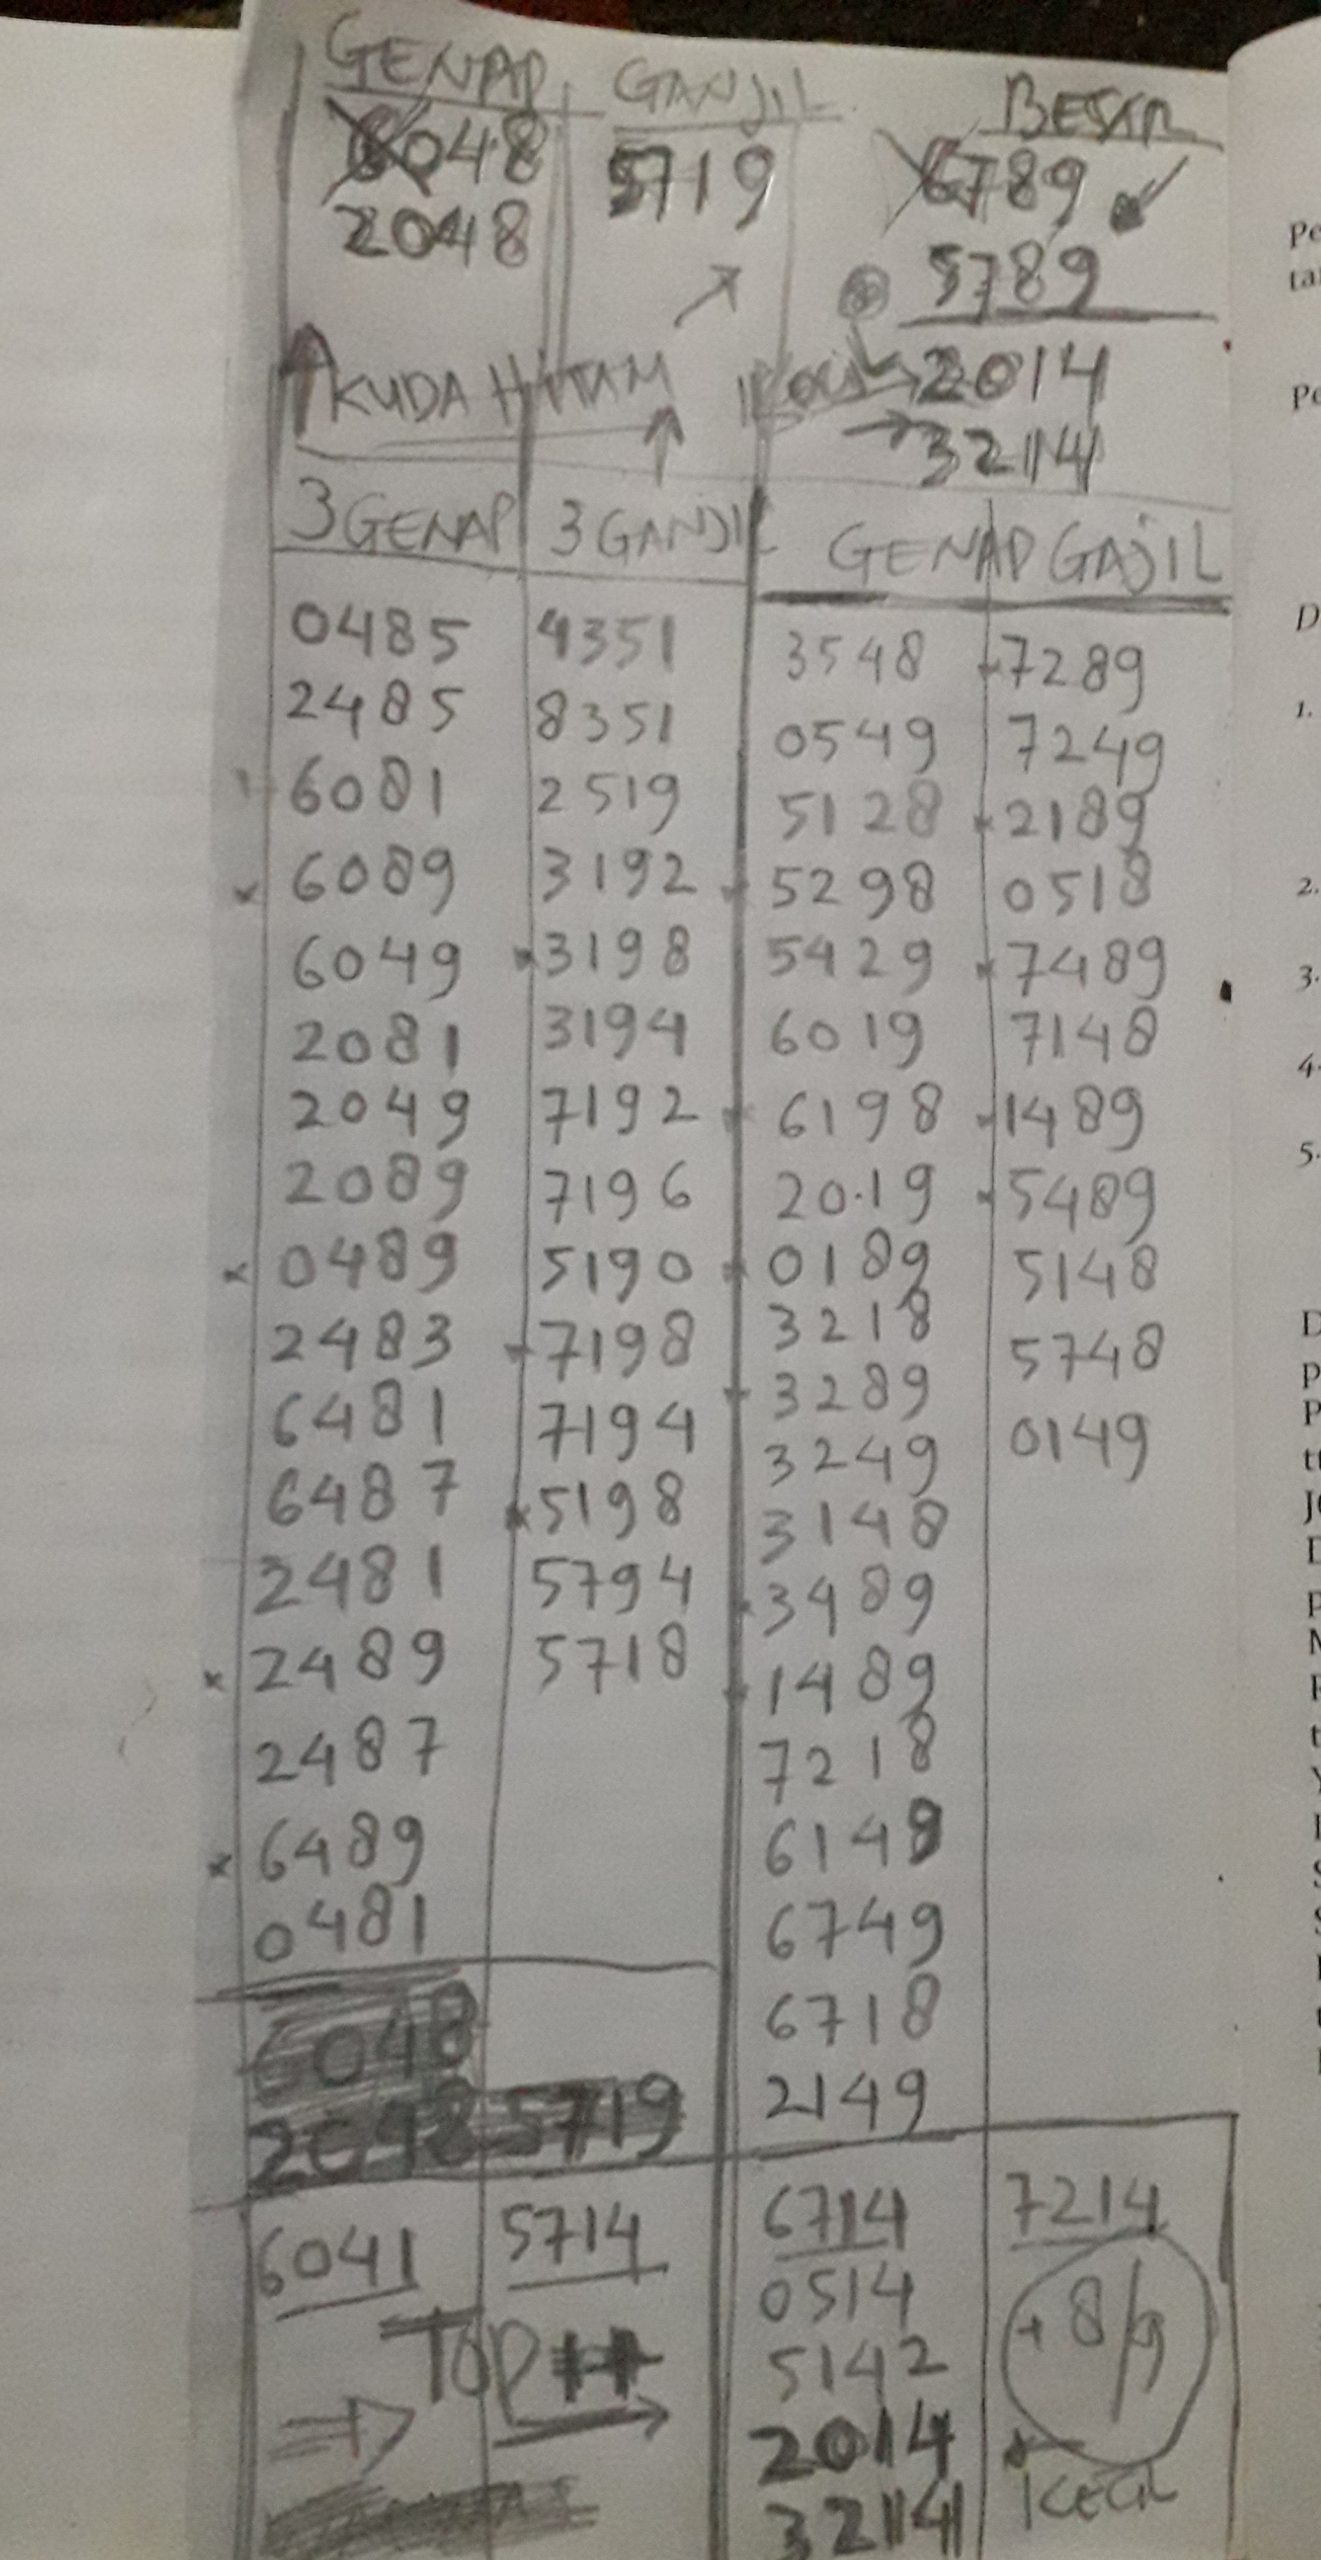 GENAP GANJIL BESAR
6048 5719 6789
2048 5789
KUDA HITAM 2014
3214
3 GENAP 3 GANJIL GENAP GAJIL
0485 4351 3548 7289
2485 8351 0549 7249
6081 2519 5128 2189
6089 3192 5298 0518
6049 3198 5429 7489
2081 3194 6019 7148
2049 7192 6198 1489
2089 7196 2019 5489
0489 5190 0189 5148
2483 7198 3218 5748
6481 7194 3289 0149
6487 5198 3249
2481 5794 3148
2489 5718 3489
2487 1489
6489 7218
0481 6148
6048 6749
2048 5719 6718
2149
6041 5714 6714 7214
TOP ++ 0514 + 8/9
5142
2014
3214 KECIL
Pe
ta
Pe
D
1.
2.
3.
4.
5.